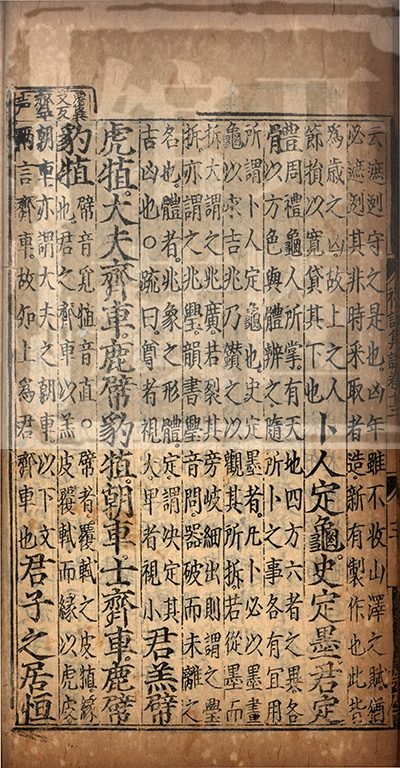 云遮迾守之是也凶年雖不收山澤之賦猶
必遮迾其非時采取者造新有製作也此皆
為歲之凶故上之人
節損以寬貸其下也
卜人定龜史定墨君定
體
周禮龜人所掌有天地四方六者之異各
以方色與體辨之隨所卜之事各有宜用
所謂卜人定龜也史定墨者凡卜必以墨畫
龜以求吉兆乃鑽之以觀其所拆若從墨而
拆大謂之兆廣若裂其旁岐細出則謂之璺
拆亦謂之兆璺韻書璺音問器破而未離之
名也體者兆象之形體定謂決定其
吉凶也○疏曰尊者視大卑者視小
君羔幦
虎犆大夫齊車鹿幦豹犆朝車士齊車鹿幦
豹犆
幦音覓犆音直○幦者覆軾之皮犆緣
也君之齊車以羔皮覆軾而緣以虎皮
朝車亦謂大夫之朝車以下文
兩言齊車故知上為君齊車也
君子之居恒